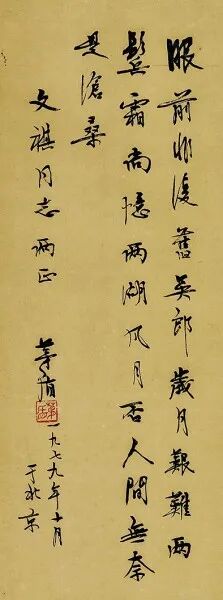 眼前非復舊吳郎歲月艱難兩
鬢霜尚憶兩湖风月否人間無奈
是滄桑
文祺同志哂正
茅盾
一九七九年十月
于北京